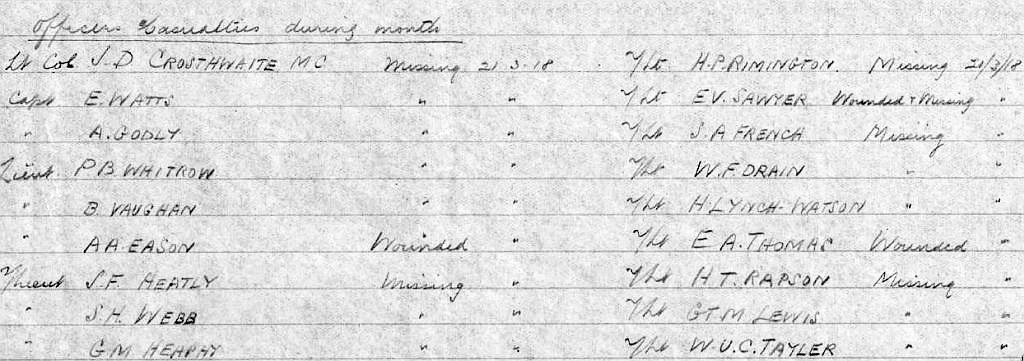 Officers Casualties during month
Lt Col J.D CROSTHWAITE MC Missing 21 3-18 2/Lt H.P.RIMINGTON. Missing 21/3/18
Capt E. WATTS " " 2/Lt E.V. SAWYER Wounded & Missing "
" A. GODLY " " 2/Lt S.A FRENCH Missing "
Lieut. P.B. WHITROW " " 2/Lt W.F. DRAIN " "
" B. VAUGHAN " " 2/Lt H. LYNCH-WATSON " "
" A A. EASON Wounded " 2/Lt E A. THOMAS Wounded "
2/Lieut J.F. HEATLY Missing " 2/Lt H.T. RAPSON Missing "
" S.H. WEBB " " 2/Lt G T.M LEWIS " "
" G M HEAPHY " " 2/Lt W.U.C. TAYLER " "